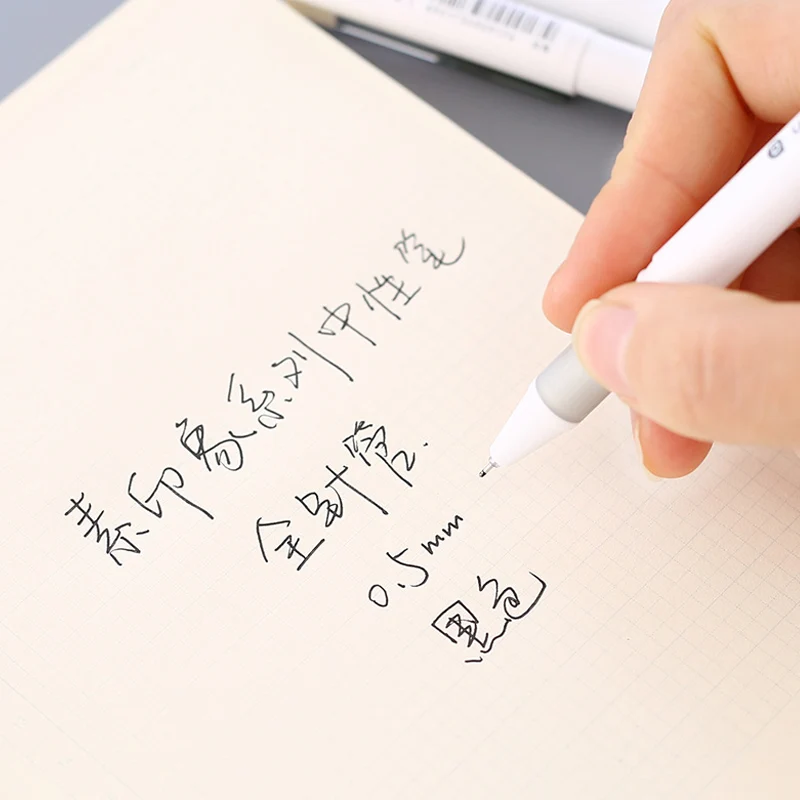 素印象系列中性笔
全针管.
0.5mm
黑色